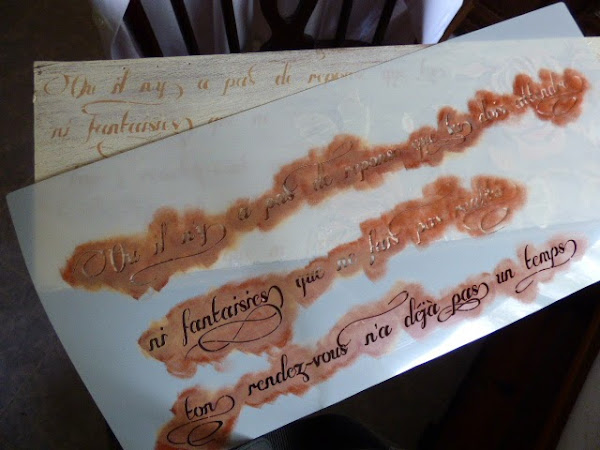 Ou il n'y a pas de repos
ni fantaisies
Ou il n'y a pas de repos que dois attendre
ni fantaisies que ne fait pas
ton rendez-vous n'a déjà pas un temps